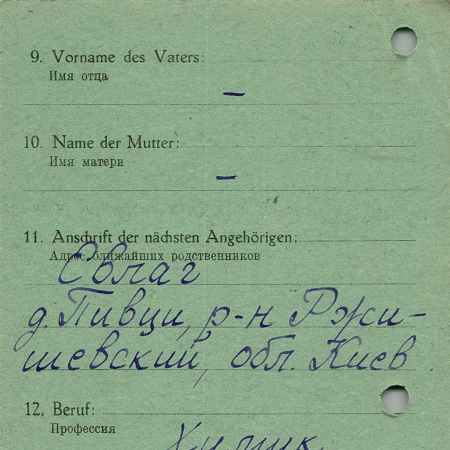 9. Vorname des Vaters:
Имя отца
—
10. Name der Mutter:
Имя матери
—
11. Anschrift der nächsten Angehörigen:
Адрес ближайших родственников
д. Пивци, р-н Ржи-
щевский, обл. Киев
12. Beruf:
Профессия